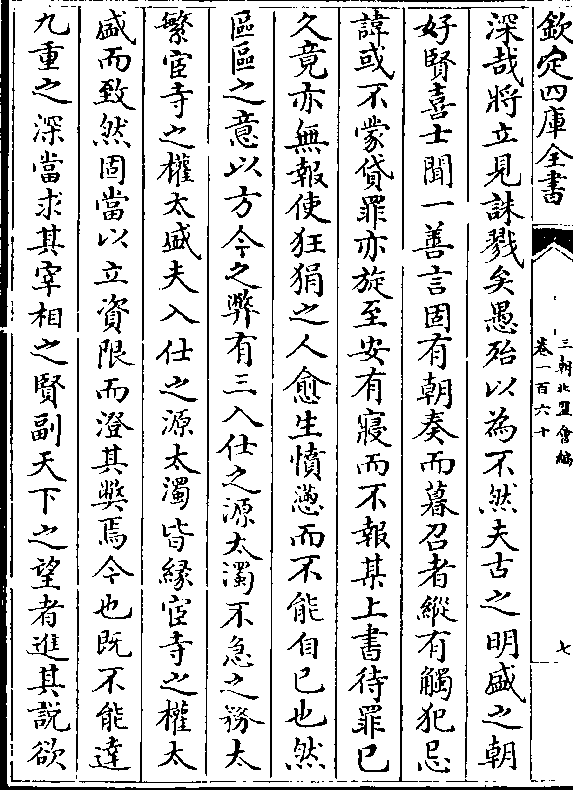 欽定四庫全書
三朝北盟會編
卷一百六十
七
深哉將立見誅戮矣愚殆以為不然夫古之明盛之朝
好賢喜士聞一善言固有朝奏而暮召者縱有觸犯忌
諱或不蒙貸罪亦旋至安有寢而不報某上書待罪已
久竟亦無報使狂狷之人愈生憤懣而不能自已也然
區區之意以方今之弊有三入仕之源太濁不急之務太
繁宦寺之權太盛夫入仕之源太濁皆縁宦寺之權太
盛而致然固當以立資限而澄其獘焉今也既不能達
九重之深當求其宰相之賢副天下之望者進其説欲